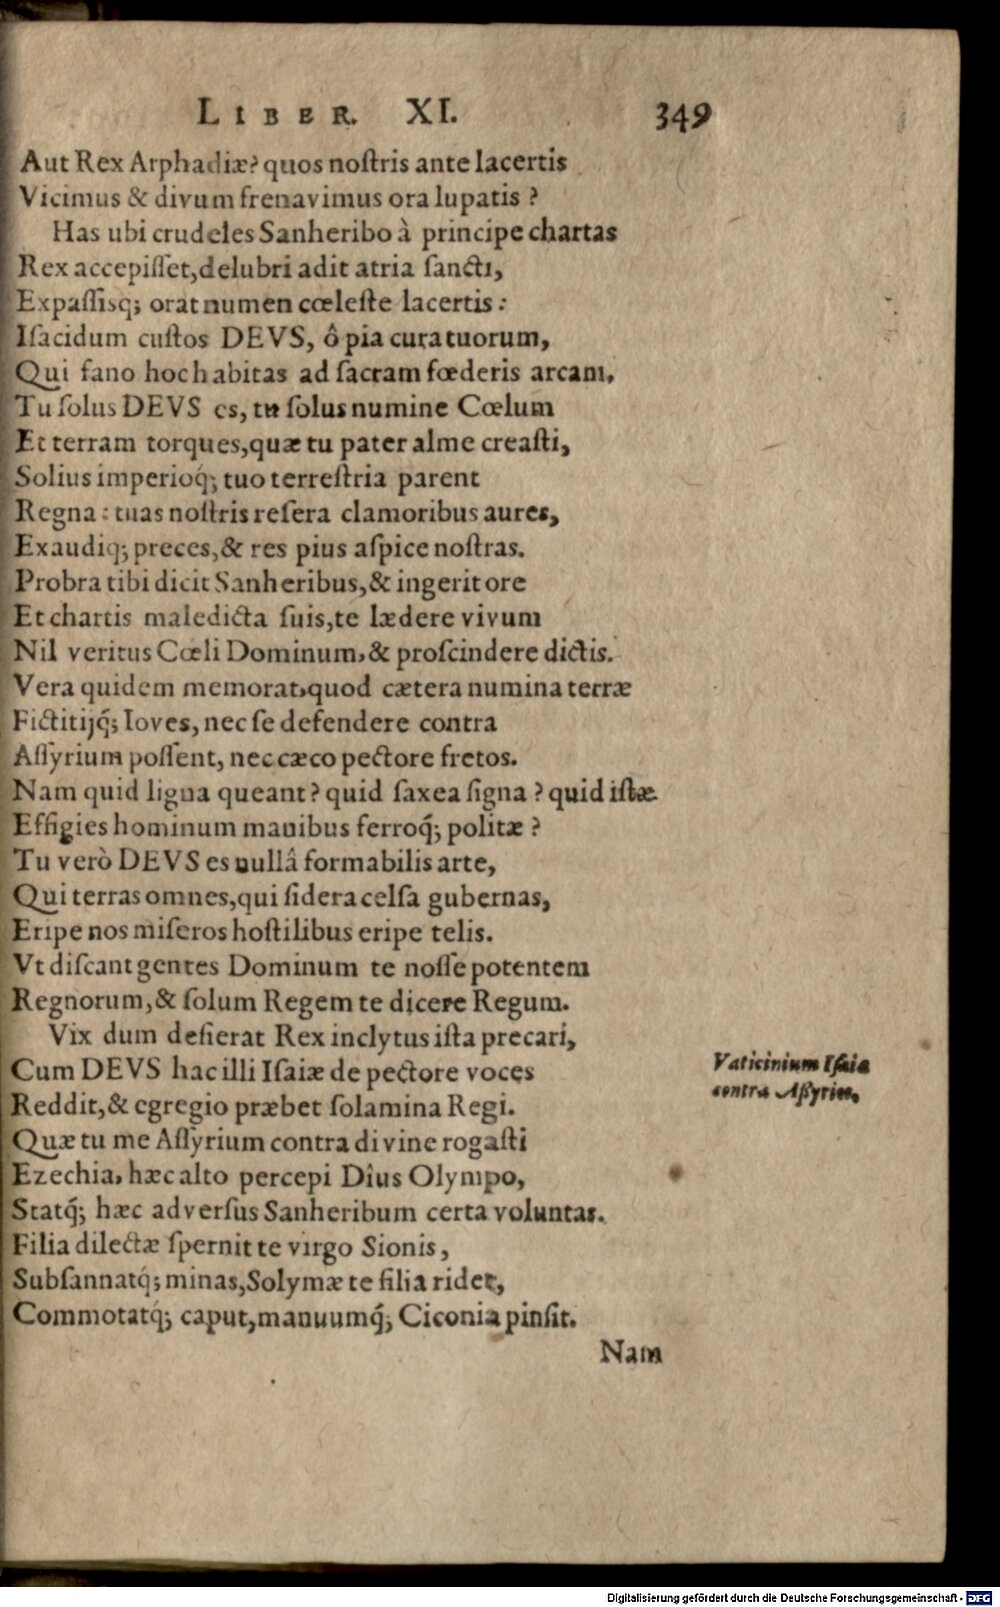 LIBER. XI. 349
Aut Rex Arphadiæ? quos noſtris ante lacertis
Vicimus & divum frenavimus ora lupatis ?
Has ubi crudeles Sanheribo à principe chartas
Rex accepiſſet, delubri adit atria ſancti,
Expaſſisq; orat numen cœleſte lacertis:
Iſacidum cuſtos DEVS, ô pia cura tuorum,
Qui fano hoc habitas ad ſacram fœderis arcam,
Tu ſolus DEVS es, tu ſolus numine Cœlum
Et terram torques, quæ tu pater alme creaſti,
Solius imperioq́; tuo terreſtria parent
Regna: tuas noſtris reſera clamoribus aures,
Exaudiq; preces, & res pius aſpice noſtras.
Probra tibi dicit Sanheribus, & ingerit ore
Et chartis maledicta ſuis, te lædere vivum
Nil veritus Cœli Dominum, & proſcindere dictis.
Vera quidem memorat, quod cætera numina terræ
Fictitijq́; Ioves, nec ſe defendere contra
Aſſyrium poſſent, nec cæco pectore fretos.
Nam quid ligna queant? quid ſaxea ſigna? quid iſtæ
Effigies hominum manibus ferroq́; politæ ?
Tu verò DEVS es nullâ formabilis arte,
Qui terras omnes, qui ſidera celſa gubernas,
Eripe nos miſeros hoſtilibus eripe telis.
Vt diſcant gentes Dominum te noſſe potentem
Regnorum, & ſolum Regem te dicere Regum.
Vix dum deſierat Rex inclytus iſta precari,
Cum DEVS hac illi Iſaiæ de pectore voces
Reddit, & egregio præbet ſolamina Regi.
Quæ tu me Aſſyrium contra divine rogaſti
Ezechia, hæc alto percepi Dîus Olympo,
Statq́; hæc adverſus Sanheribum certa voluntas.
Filia dilectæ ſpernit te virgo Sionis,
Subſannatq́; minas, Solymæ te filia ridet,
Commotatq́; caput, manuumq́; Ciconia pinſit.
Nam
Vaticinium Iſaiæ
contra Aßyrios.
Digitalisierung gefördert durch die Deutsche Forschungsgemeinschaft - DFG